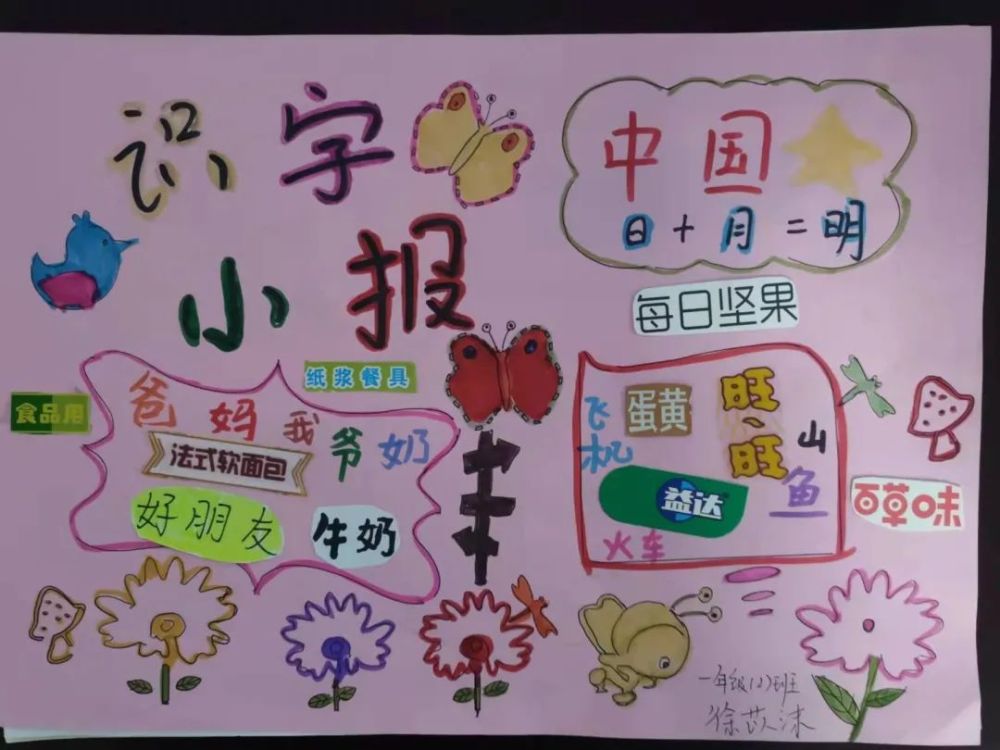 识字
小报
中国
日+月=明
每日坚果
纸浆餐具
食品用
爸妈我爷奶
法式软面包
好朋友
牛奶
飞机
蛋黄
旺、旺
山
鱼
益达
火车
百草味
一年级(2)班